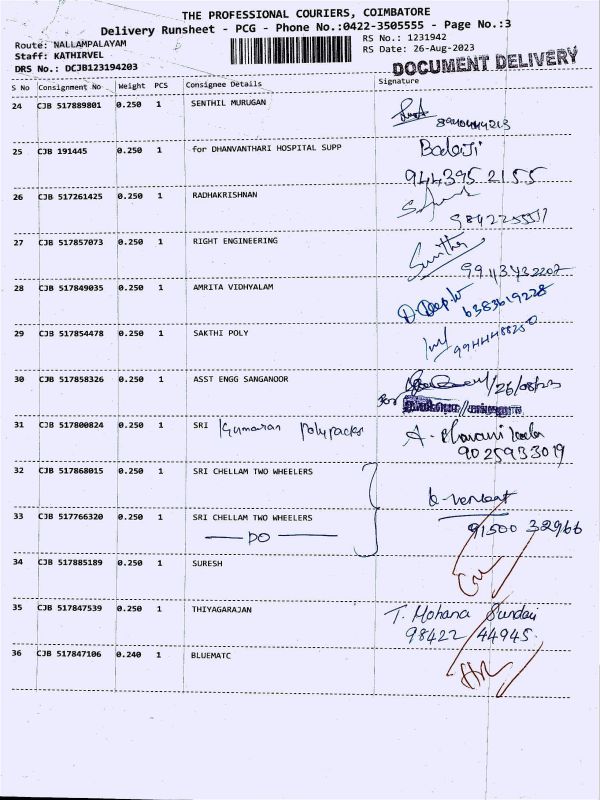 THE PROFESSIONAL COURIERS, COIMBATORE
Delivery Runsheet - PCG - Phone No.:0422-3505555 - Page No.:3
Route: NALLAMPALAYAM
RS No.: 1231942
Staff: KATHIRVEL
RS Date: 26-Aug-2023
DRS No.: DCJB123194203
DOCUMENT DELIVERY
S No Consignment No Weight PCS Consignee Details Signature
24 CJB 517889801 0.250 1 SENTHIL MURUGAN
25 CJB 191445 0.250 1 for DHANVANTHARI HOSPITAL SUPP Badaji
944395 2155
26 CJB 517261425 0.250 1 RADHAKRISHNAN
27 CJB 517857073 0.250 1 RIGHT ENGINEERING
28 CJB 517849035 0.250 1 AMRITA VIDHYALAM
6383619228
29 CJB 517854478 0.250 1 SAKTHI POLY
9944488250
30 CJB 517858326 0.250 1 ASST ENGG SANGANOOR
/26/08/23
for
31 CJB 517800824 0.250 1 SRI Kumaran Polypacks
9025933019
32 CJB 517868015 0.250 1 SRI CHELLAM TWO WHEELERS
K-venkat
33 CJB 517766320 0.250 1 SRI CHELLAM TWO WHEELERS
DO
91500 32966
34 CJB 517885189 0.250 1 SURESH
35 CJB 517847539 0.250 1 THIYAGARAJAN T. Mohana Sundari
98422 44945.
36 CJB 517847106 0.240 1 BLUEMATC